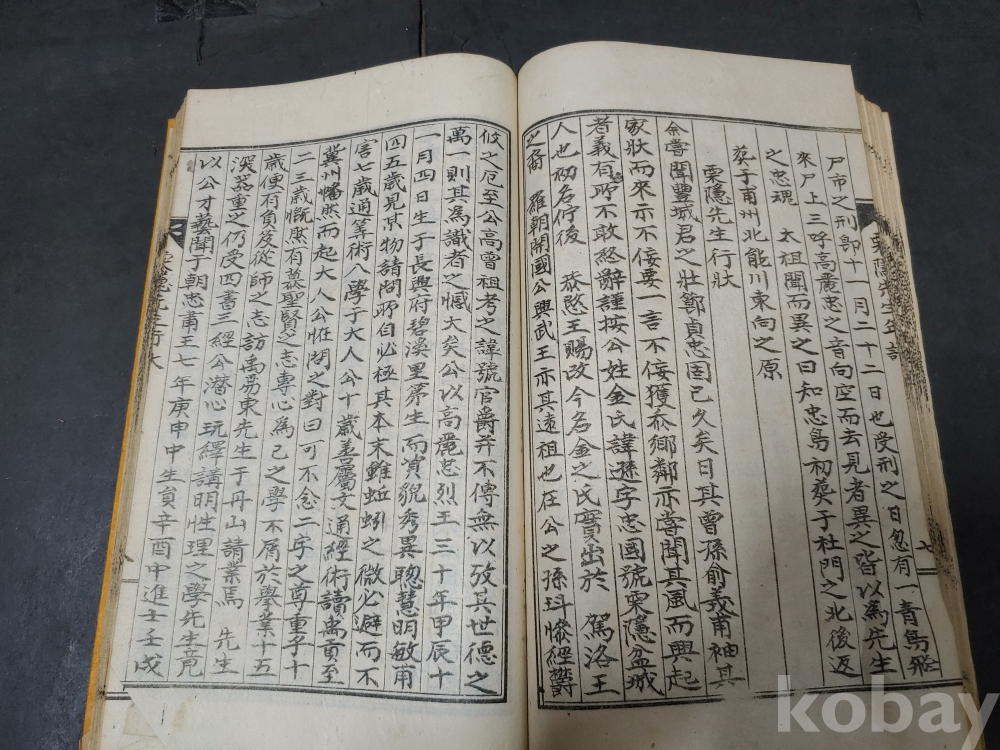 尸市之刑卽十一月二十二日也受刑之日忽有一青鳥飛
來尸上三呼高麗忠之音向空而去見者異之皆以爲先生
之忠魂　太祖聞而異之曰知忠鳥初葬于杜門之北後返
葬于甫州北能川東向之原
栗隱先生行狀
余嘗聞豐城君之壯節貞忠固已久矣日其曾孫俞義甫袖其
家狀而來示不侫要一言不侫獲忝鄉鄰亦嘗聞其風而興起
者義有所不敢終辭謹按公姓金氏諱遜字忠國號栗隱盆城
人也初名佇後　恭愍王賜改今名金之氏實出於　駕洛王
之裔　羅朝開國公興武王亦其遠祖也在公之孫㺬慘經鬱
攸之厄至公高曾祖考之諱號官爵并不傳無以攷其世德之
萬一則其爲識者之憾大矣公以高麗忠烈王三十年甲辰十
一月四日生于長興府碧溪里第生而資貌秀異聰慧明敏甫
四五歲見某物請問所自必極其本末雖蚯蚓之微必避而不
害七歲通筭術八學于大人公十歲善屬文通經術讀禹貢至
冀州幡然而起大人公怪問之對曰可不念二字之尊重乎十
二三歲慨然有慕聖賢之志專心爲己之學不屑於擧業十五
歲便有負笈從師之志訪禹易東先生于丹山請業焉　先生
深器重之仍受四書三經公潛心玩繹講明性理之學先生竟
以公才藝聞于朝忠肅王七年庚申中生員辛酉中進士壬戌
七
八
kobay